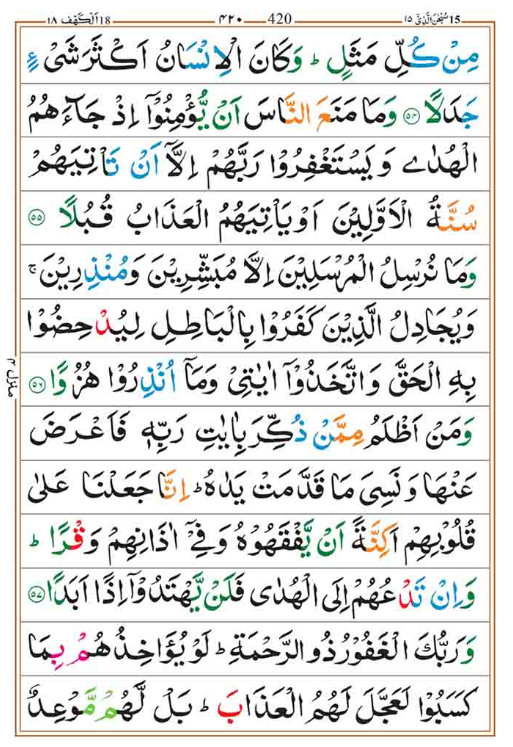 الکھف ١٨ 18 ٤٢٠ 420 سبحٰن الذی ١٥ 15
مِنْ كُلِّ مَثَلٍ ؕ وَكَانَ الْاِنْسَانُ اَكْثَرَ شَیْءٍ
جَدَلًا ﴿۵۴﴾ وَمَا مَنَعَ النَّاسَ اَنْ یُّؤْمِنُوْۤا اِذْ جَآءَهُمُ
الْهُدٰی وَیَسْتَغْفِرُوْا رَبَّهُمْ اِلَّاۤ اَنْ تَاْتِیَهُمْ
سُنَّةُ الْاَوَّلِیْنَ اَوْ یَاْتِیَهُمُ الْعَذَابُ قُبُلًا ﴿۵۵﴾
وَمَا نُرْسِلُ الْمُرْسَلِیْنَ اِلَّا مُبَشِّرِیْنَ وَمُنْذِرِیْنَ ۚ
وَیُجَادِلُ الَّذِیْنَ كَفَرُوْا بِالْبَاطِلِ لِیُدْحِضُوْا
بِهِ الْحَقَّ وَاتَّخَذُوْۤا اٰیٰتِیْ وَمَاۤ اُنْذِرُوْا هُزُوًا ﴿۵۶﴾
وَمَنْ اَظْلَمُ مِمَّنْ ذُكِّرَ بِاٰیٰتِ رَبِّهٖ فَاَعْرَضَ
عَنْهَا وَنَسِیَ مَا قَدَّمَتْ یَدٰهُ ؕ اِنَّا جَعَلْنَا عَلٰی
قُلُوْبِهِمْ اَكِنَّةً اَنْ یَّفْقَهُوْهُ وَفِیْۤ اٰذَانِهِمْ وَقْرًا ؕ
وَاِنْ تَدْعُهُمْ اِلَی الْهُدٰی فَلَنْ یَّهْتَدُوْۤا اِذًا اَبَدًا ﴿۵۷﴾
وَرَبُّكَ الْغَفُوْرُ ذُو الرَّحْمَةِ ؕ لَوْ یُؤَاخِذُهُمْ بِمَا
كَسَبُوْا لَعَجَّلَ لَهُمُ الْعَذَابَ ؕ بَلْ لَّهُمْ مَّوْعِدٌ
منزل ٤